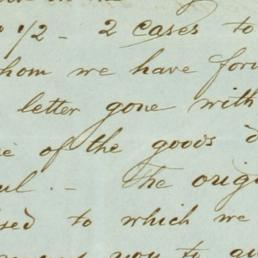 1/2 - 2 cases to
whom we have for
letter gone with
of the goods
The orig
to which we
you to